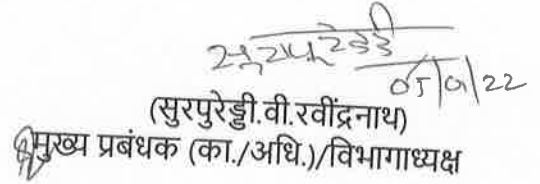 सुरपुरेड्डी
05/01/22
(सुरपुरेड्डी.वी.रवींद्रनाथ)
मुख्य प्रबंधक (का./अधि.)/विभागाध्यक्ष